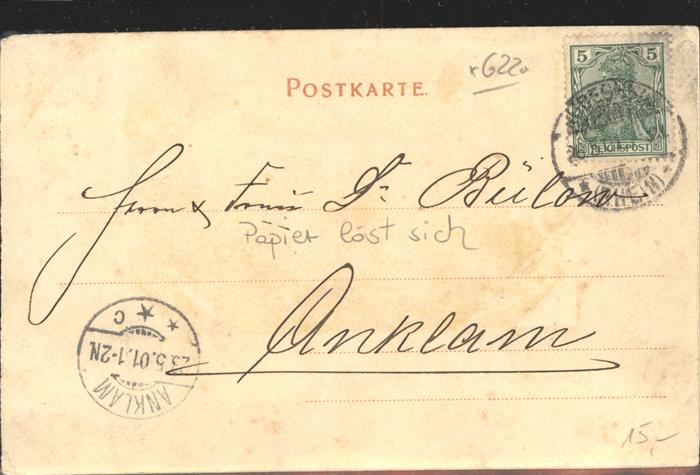 5 5
r622a
POSTKARTE.
REICHSPOST
Herrn & Frau Dr. Bülow
Papier löst sich
Anklam
C
23.5.01.1-2N
ANKLAM
15,-